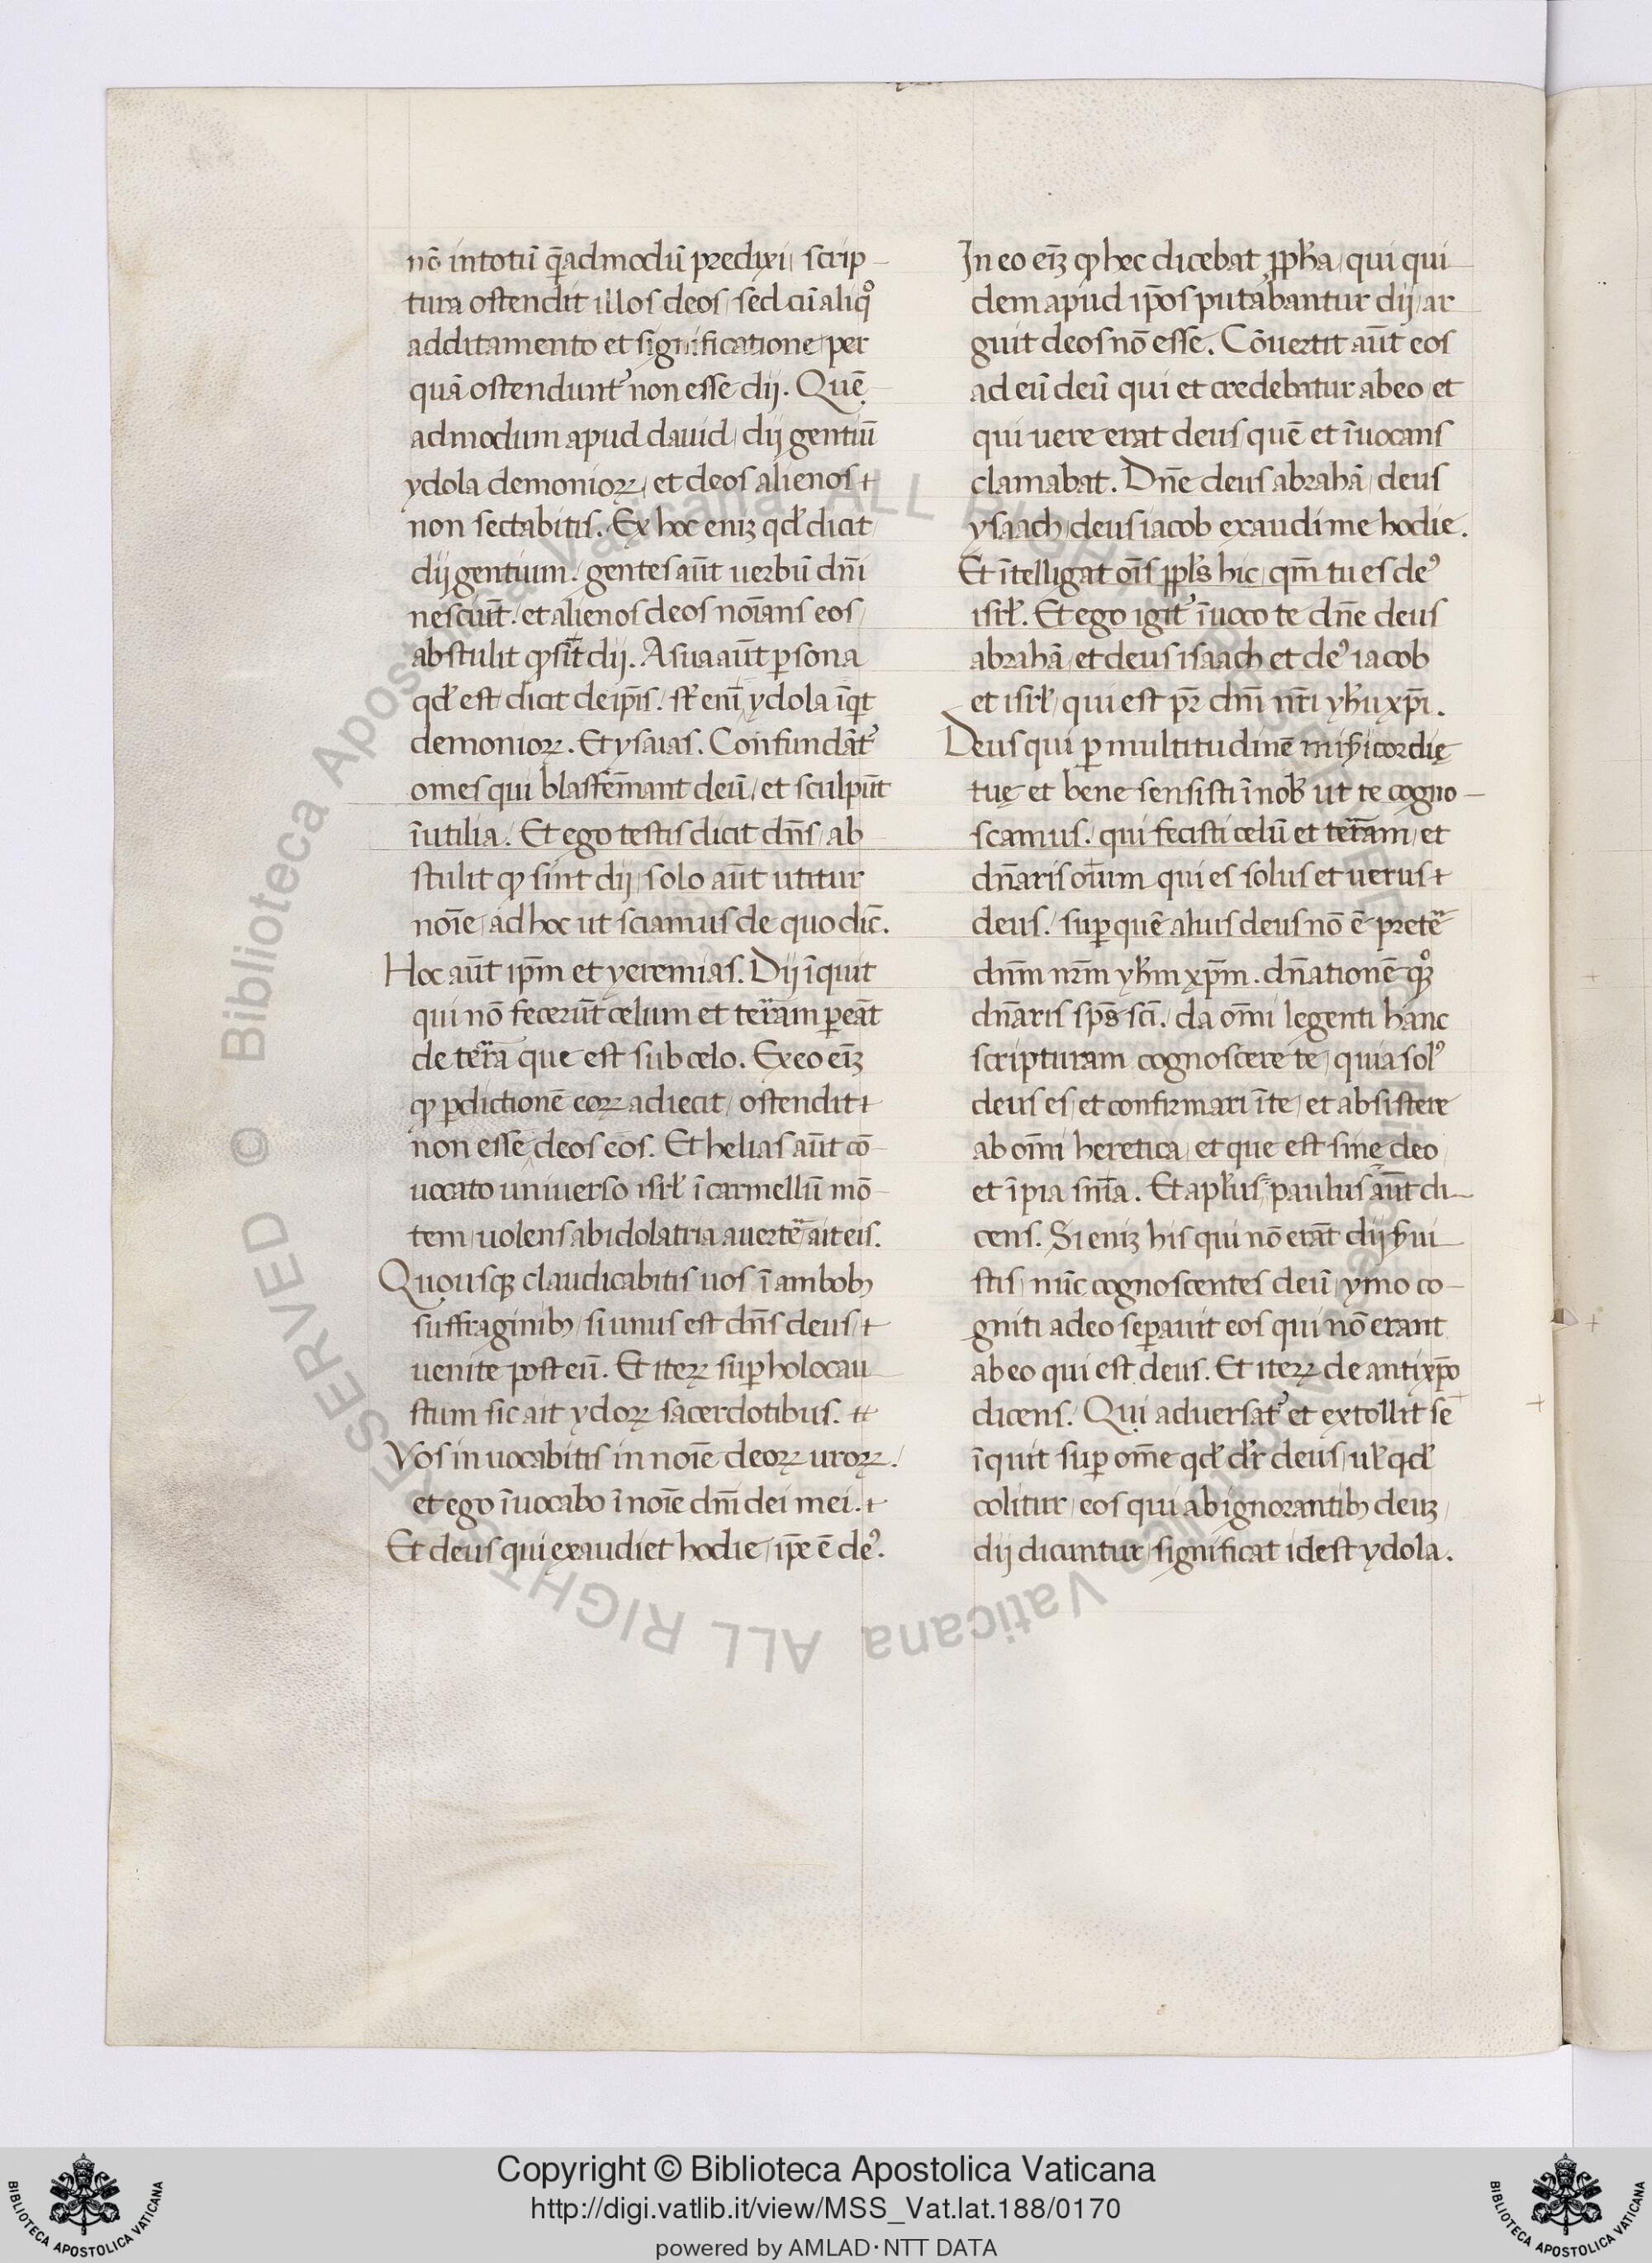 nō intotū q̄admodū predixi, scrip-
tura ostendit illos deos, sed cū aliqº
additamento et significatione, per
quā ostendunt᾿ non esse dij. Quē
admodum apud dauid, dij gentiū
ydola demonioꝝ, et deos alienos
non sectabitis. Ex hoc eniꝫ qđ dicit,
dij gentium. gentes aūt uerbū dn̄i
nesciūt. et alienos deos noīans eos,
abstulit ꝙ sīt dij. A sua aūt ꝑsona
qđ est, dicit de ip̄is. st̄ enī, ydola īqͥt
demonioꝝ. Et ysaias. Confundāt᾿
omes qui blasfēmant deū, et sculpūt
īutilia. Et ego testis dicit dn̄s, ab
stulit ꝙ sint dij, solo aūt utitur
noīe, ad hoc ut sciamus de quo dic̄.
Hoc aūt ip̄m et yeremias. Dij īquit
qui nō fecerūt celum et terͣam ꝑeāt
de terͣa que est sub celo. Ex eo eīꝫ
ꝙ ꝑdictionē eoꝝ adiecit, ostendit
non esse deos eos. Et helias aūt cō-
uocato uniuerso isrł ī carmellū mō-
tem, uolens ab idolatria auertē, ait eis.
Quousqꝫ claudicabitis uos ī ambobꝫ
suffraginibꝫ, si unus est dn̄s deus,
uenite post eū. Et iteꝝ suꝑ holocau
stum sic ait ydoꝝ sacerdotibus.
Vos in uocabitis in noīe deoꝝ uroꝝ.
et ego īuocabo ī noīe dn̄i dei mei.
Et deus qui exaudiet hodie, ip̄e ē de᾿.
In eo eīꝫ ꝙ hec dicebat ꝓpħa, qui qui
dem apud ip̄os putabantur dij, ar
guit deos nō esse. Cōuertit aūt eos
ad eū deū qui et credebatur ab eo, et
qui uere erat deus, quē et īuocans
clamabat. Dn̄e deus abrahā, deus
ysaach, deus iacob exaudi me hodie.
Et ītelligat oīs ppłs hic, qm̄ tu es de᾿
isrł. Et ego igit᾿ īuoco te dn̄e deus
abrahā, et deus isaach et de᾿ iacob
et isrł, qui est pr̄ dn̄i nr̄i yħu xp̄i.
Deus qui ꝑ multitudinē miẜicordię
tuę et bene sensisti ī nob̄ ut te cogno-
scamus. qui fecisti celū et terͣam, et
dn̄aris oīum qui es solus et uerus
deus. suꝑ quē alius deus nō ē, pretē
dnm̄ nrm̄ yħm xp̄m. dn̄ationē qqꝫ
dn̄aris sp̄s sc̄i. da om̄i legenti hanc
scripturam cognoscere te, quia sol᾿
deus es, et confirmari ī te, et absistere
ab om̄i heretica, et que est sine deo
et īpia sn̄ia. Et apłus paulus aūt di-
cens. Si eniꝫ his qui nō erāt dij ẜui
stis, nūc cognoscentes deū, ymo co-
gniti a deo seꝑauit eos qui nō erant
ab eo qui est deus. Et iteꝝ de antixp̄o
dicens. Qui aduersat᾿ et extollit se
īquit suꝑ om̄e qđ dr̄ deus, uł qđ
colitur, eos qui ab ignorantibꝫ deuꝫ,
dij dicuntur, significat idest ydola.
Copyright © Biblioteca Apostolica Vaticana
http://digi.vatlib.it/view/MSS_Vat.lat.188/0170
powered by AMLAD·NTT DATA